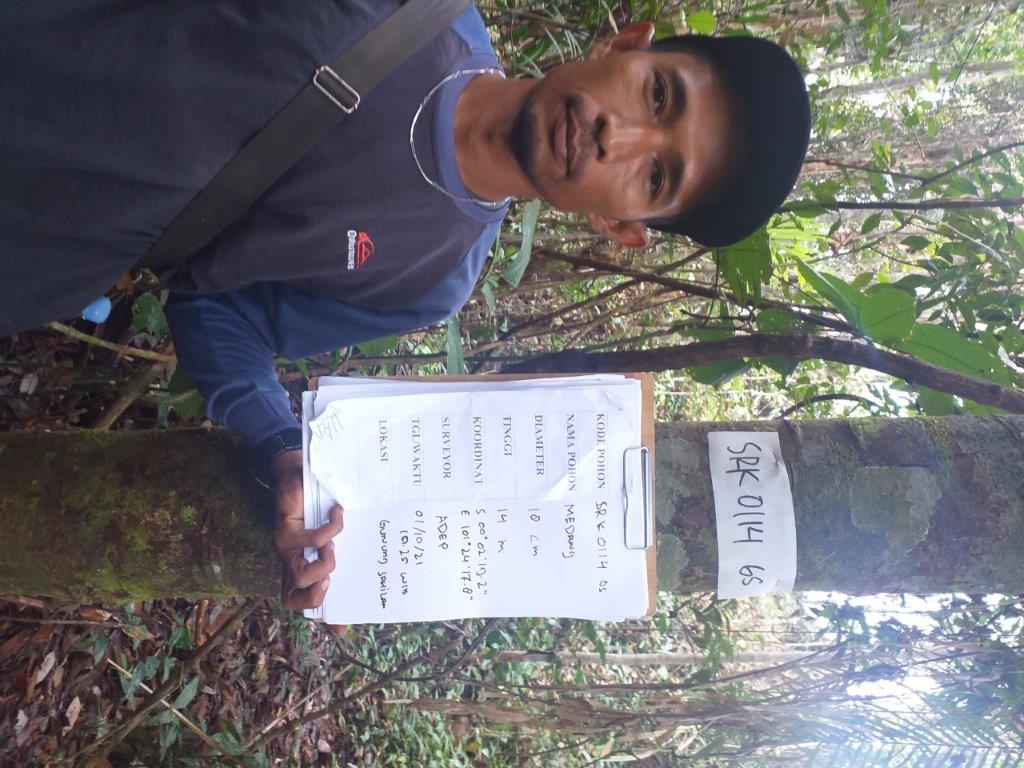 SRK 0114 GS
KODE POHON SRK 0114 GS
NAMA POHON MEDANG
DIAMETER 10 cm
TINGGI 14 m
KOORDINAT S 00°02'19.2"
E 101°24'17.8"
SURVEYOR ADEP
TGL/WAKTU 01/10/21
10.25 WIB
LOKASI GUNUNG SAHILAN